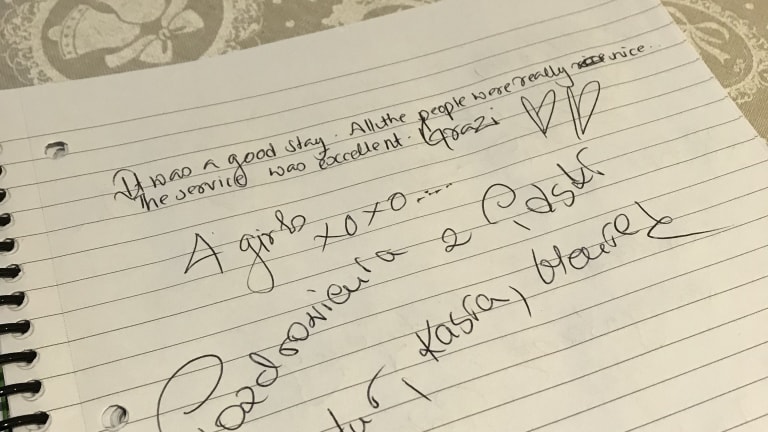 It was a good stay. All the people were really nice...
The service was excellent. Grazi
A girls xoxo....
Pozdrowienia z Polski
Kasia,